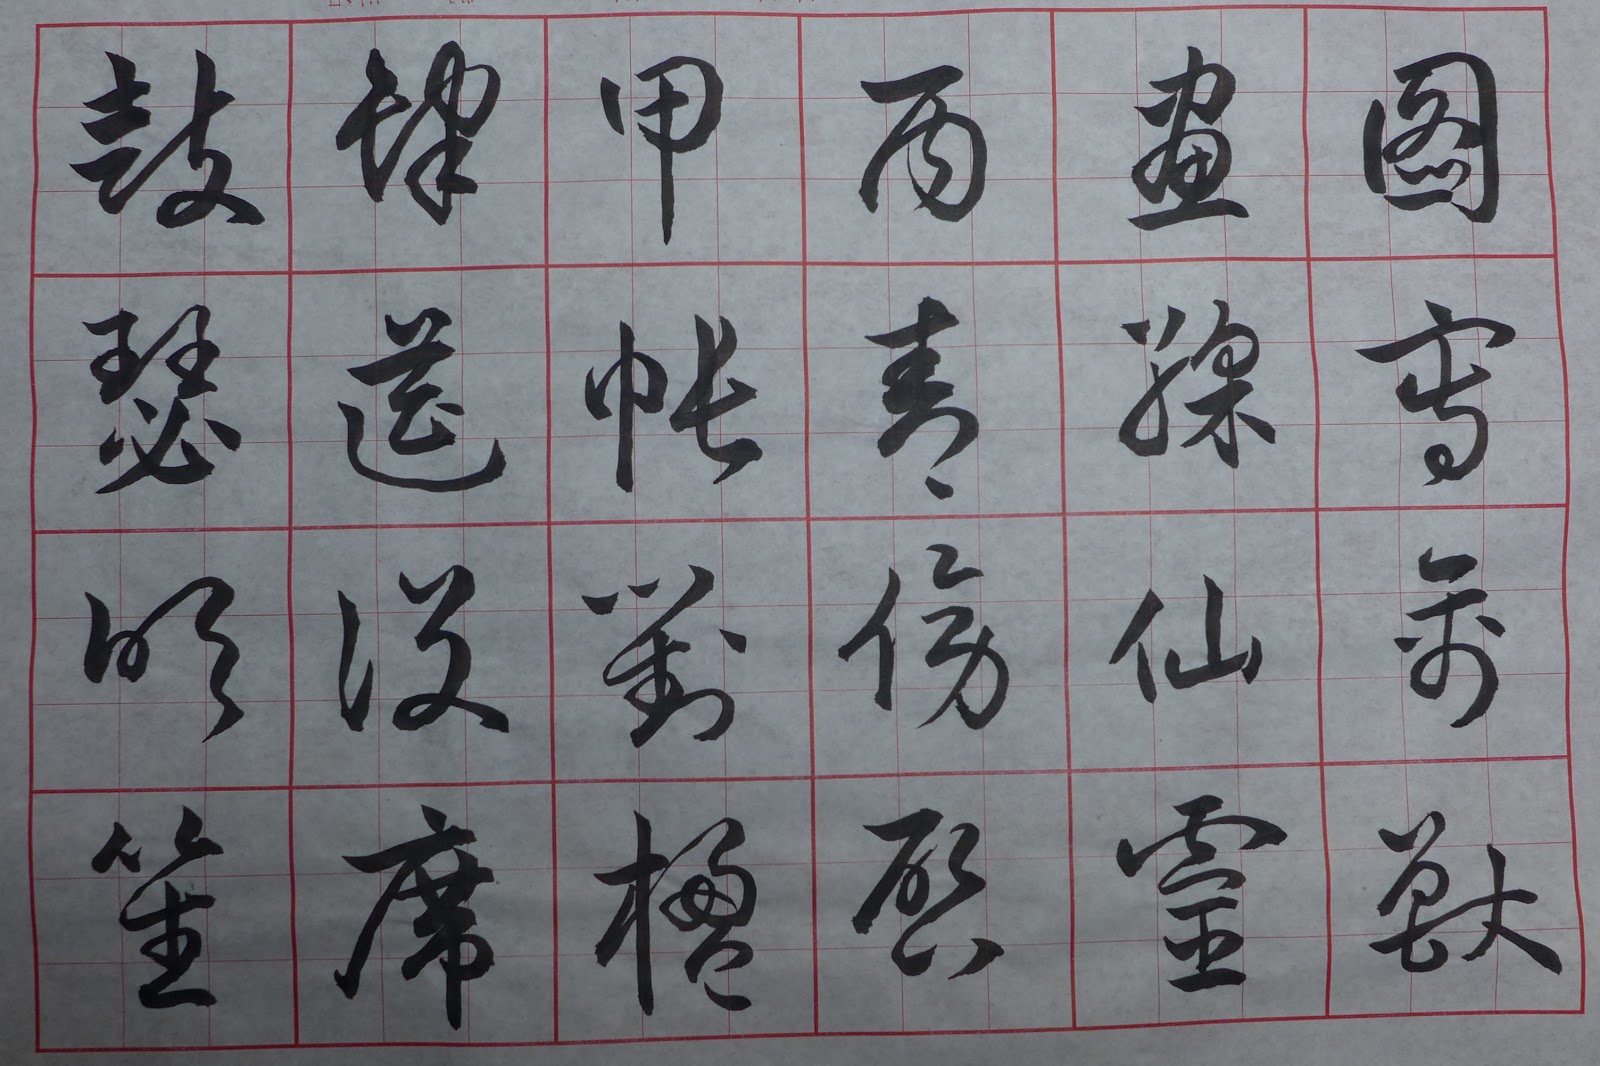 圖寫禽獸
畫綵仙靈
丙舍傍啟
甲帳對楹
肆筵設席
鼓瑟吹笙